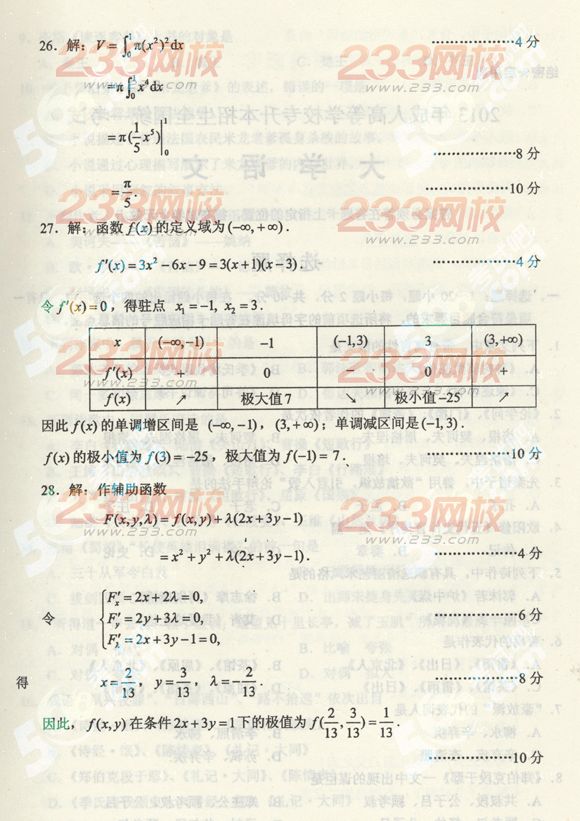 26. 解：V=∫₀¹π(x²)²dx ……………4 分
=π∫₀¹x⁴dx
=π(1/5 x⁵)|₀¹ ……………8 分
=π/5. ……………10 分
27. 解：函数 f(x) 的定义域为(−∞,+∞).
f′(x)=3x²−6x−9=3(x+1)(x−3). ……………4 分
令 f′(x)=0，得驻点 x₁=−1, x₂=3.
x (−∞,−1) −1 (−1,3) 3 (3,+∞)
f′(x) + 0 − 0 +
f(x) 极大值 7 极小值−25 ↗
因此 f(x) 的单调增区间是 (−∞,−1)，(3,+∞)；单调减区间是(−1,3).
f(x) 的极小值为 f(3)=−25，极大值为 f(−1)=7. ……………10 分
28. 解：作辅助函数
F(x,y,λ)=f(x,y)+λ(2x+3y−1)
=x²+y²+λ(2x+3y−1). ……………4 分
令 F′ₓ=2x+2λ=0, ……………6 分
F′ᵧ=2y+3λ=0,
F′_λ=2x+3y−1=0,
得 x=2/13, y=3/13, λ=−2/13. ……………8 分
因此，f(x,y) 在条件2x+3y=1下的极值为 f(2/13,3/13)=1/13.
……………10 分
233网校
www.233.com